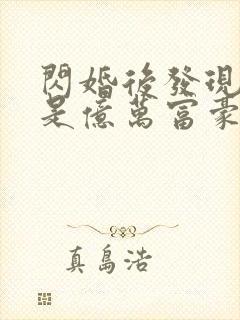 閃婚後發現
是億萬富豪
真島浩